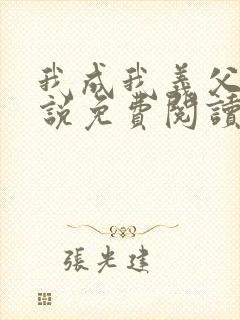 我成我義父
說免費閱讀
張光建